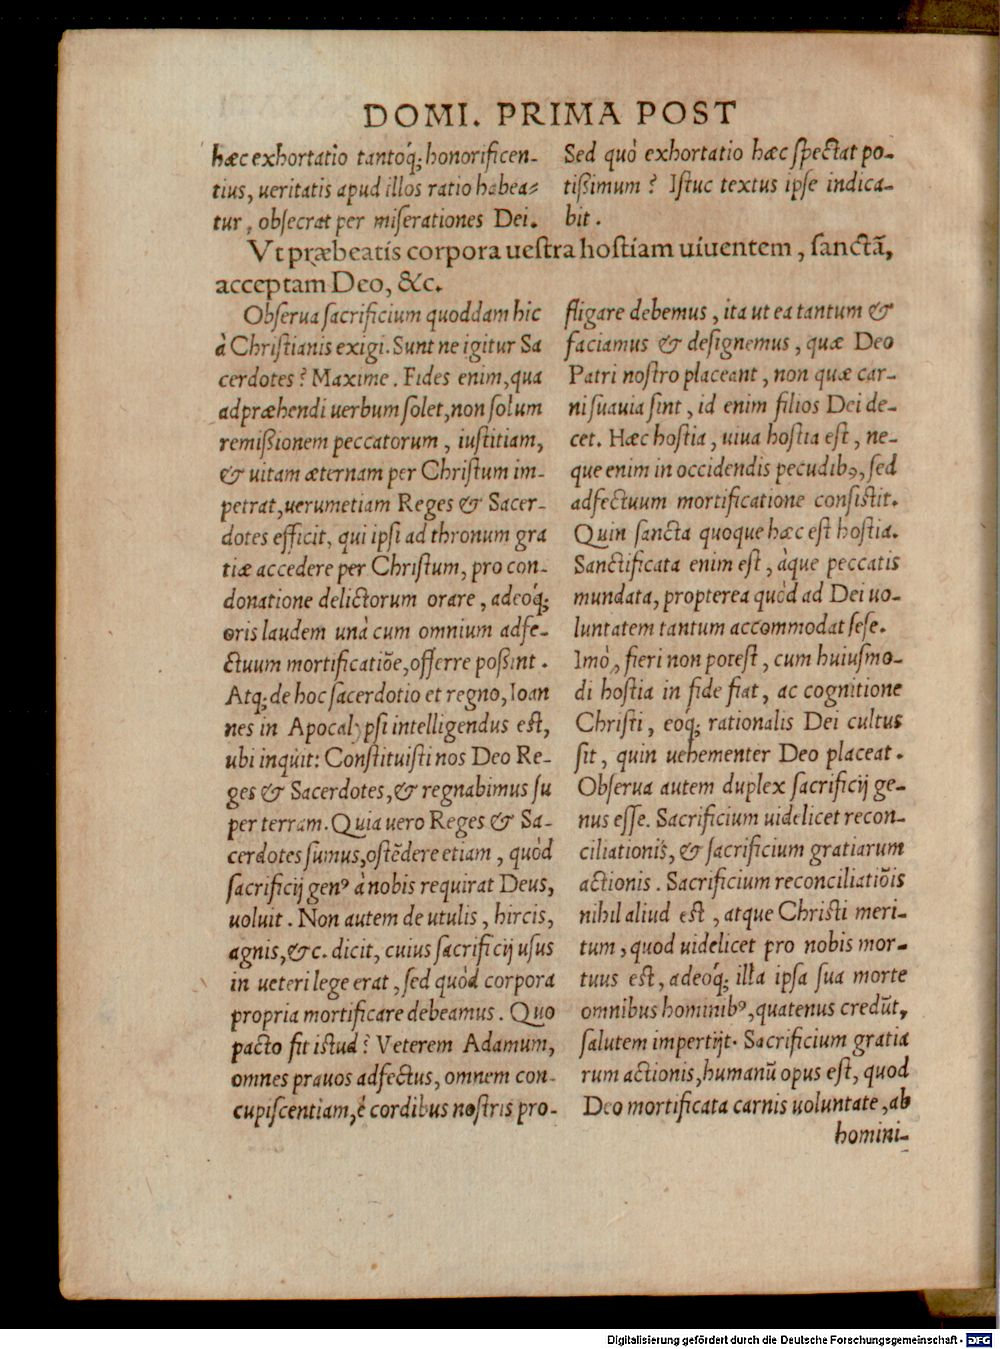 DOMI. PRIMA POST
hæc exhortatio tantoq́; honorificen-
tius, ueritatis apud illos ratio habea-
tur, obsecrat per miserationes Dei.
Sed quò exhortatio hæc spectat po-
tißimum? Istuc textus ipse indica-
bit.
Vt præbeatis corpora uestra hostiam uiuentem, sanctā,
acceptam Deo, &c.
Obserua sacrificium quoddam hic
à Christianis exigi. Sunt ne igitur Sa
cerdotes? Maxime. Fides enim, qua
adpræhendi uerbum solet, non solum
remißionem peccatorum, iustitiam,
& uitam æternam per Christum im-
petrat, uerumetiam Reges & Sacer-
dotes efficit, qui ipsi ad thronum gra
tiæ accedere per Christum, pro con-
donatione delictorum orare, adeoq́;
oris laudem unà cum omnium adfe-
ctuum mortificatiōe, offerre poßint.
Atq; de hoc sacerdotio et regno, Ioan
nes in Apocalypsi intelligendus est,
ubi inquit: Constituisti nos Deo Re-
ges & Sacerdotes, & regnabimus su
per terram. Quia uero Reges & Sa-
cerdotes sumus, ostēdere etiam, quòd
sacrificij genꝰ à nobis requirat Deus,
uoluit. Non autem de utulis, hircis,
agnis, &c. dicit, cuius sacrificij usus
in ueteri lege erat, sed quòd corpora
propria mortificare debeamus. Quo
pacto fit istud? Veterem Adamum,
omnes prauos adfectus, omnem con-
cupiscentiam, è cordibus nostris pro-
fligare debemus, ita ut ea tantum &
faciamus & designemus, quæ Deo
Patri nostro placeant, non quæ car-
ni suauia sint, id enim filios Dei de-
cet. Hæc hostia, uiua hostia est, ne-
que enim in occidendis pecudibꝰ, sed
adfectuum mortificatione consistit.
Quin sancta quoque hæc est hostia.
Sanctificata enim est, àque peccatis
mundata, propterea quòd ad Dei uo-
luntatem tantum accommodat sese.
Imò, fieri non potest, cum huiusmo-
di hostia in fide fiat, ac cognitione
Christi, eoq; rationalis Dei cultus
sit, quin uehementer Deo placeat.
Obserua autem duplex sacrificij ge-
nus esse. Sacrificium uidelicet recon-
ciliationis, & sacrificium gratiarum
actionis. Sacrificium reconciliatiōis
nihil aliud est, atque Christi meri-
tum, quod uidelicet pro nobis mor-
tuus est, adeoq́; illa ipsa sua morte
omnibus hominibꝰ, quatenus credūt,
salutem impertijt. Sacrificium gratia
rum actionis, humanū opus est, quod
Deo mortificata carnis uoluntate, ab
homini-
Digitalisierung gefördert durch die Deutsche Forschungsgemeinschaft - DFG